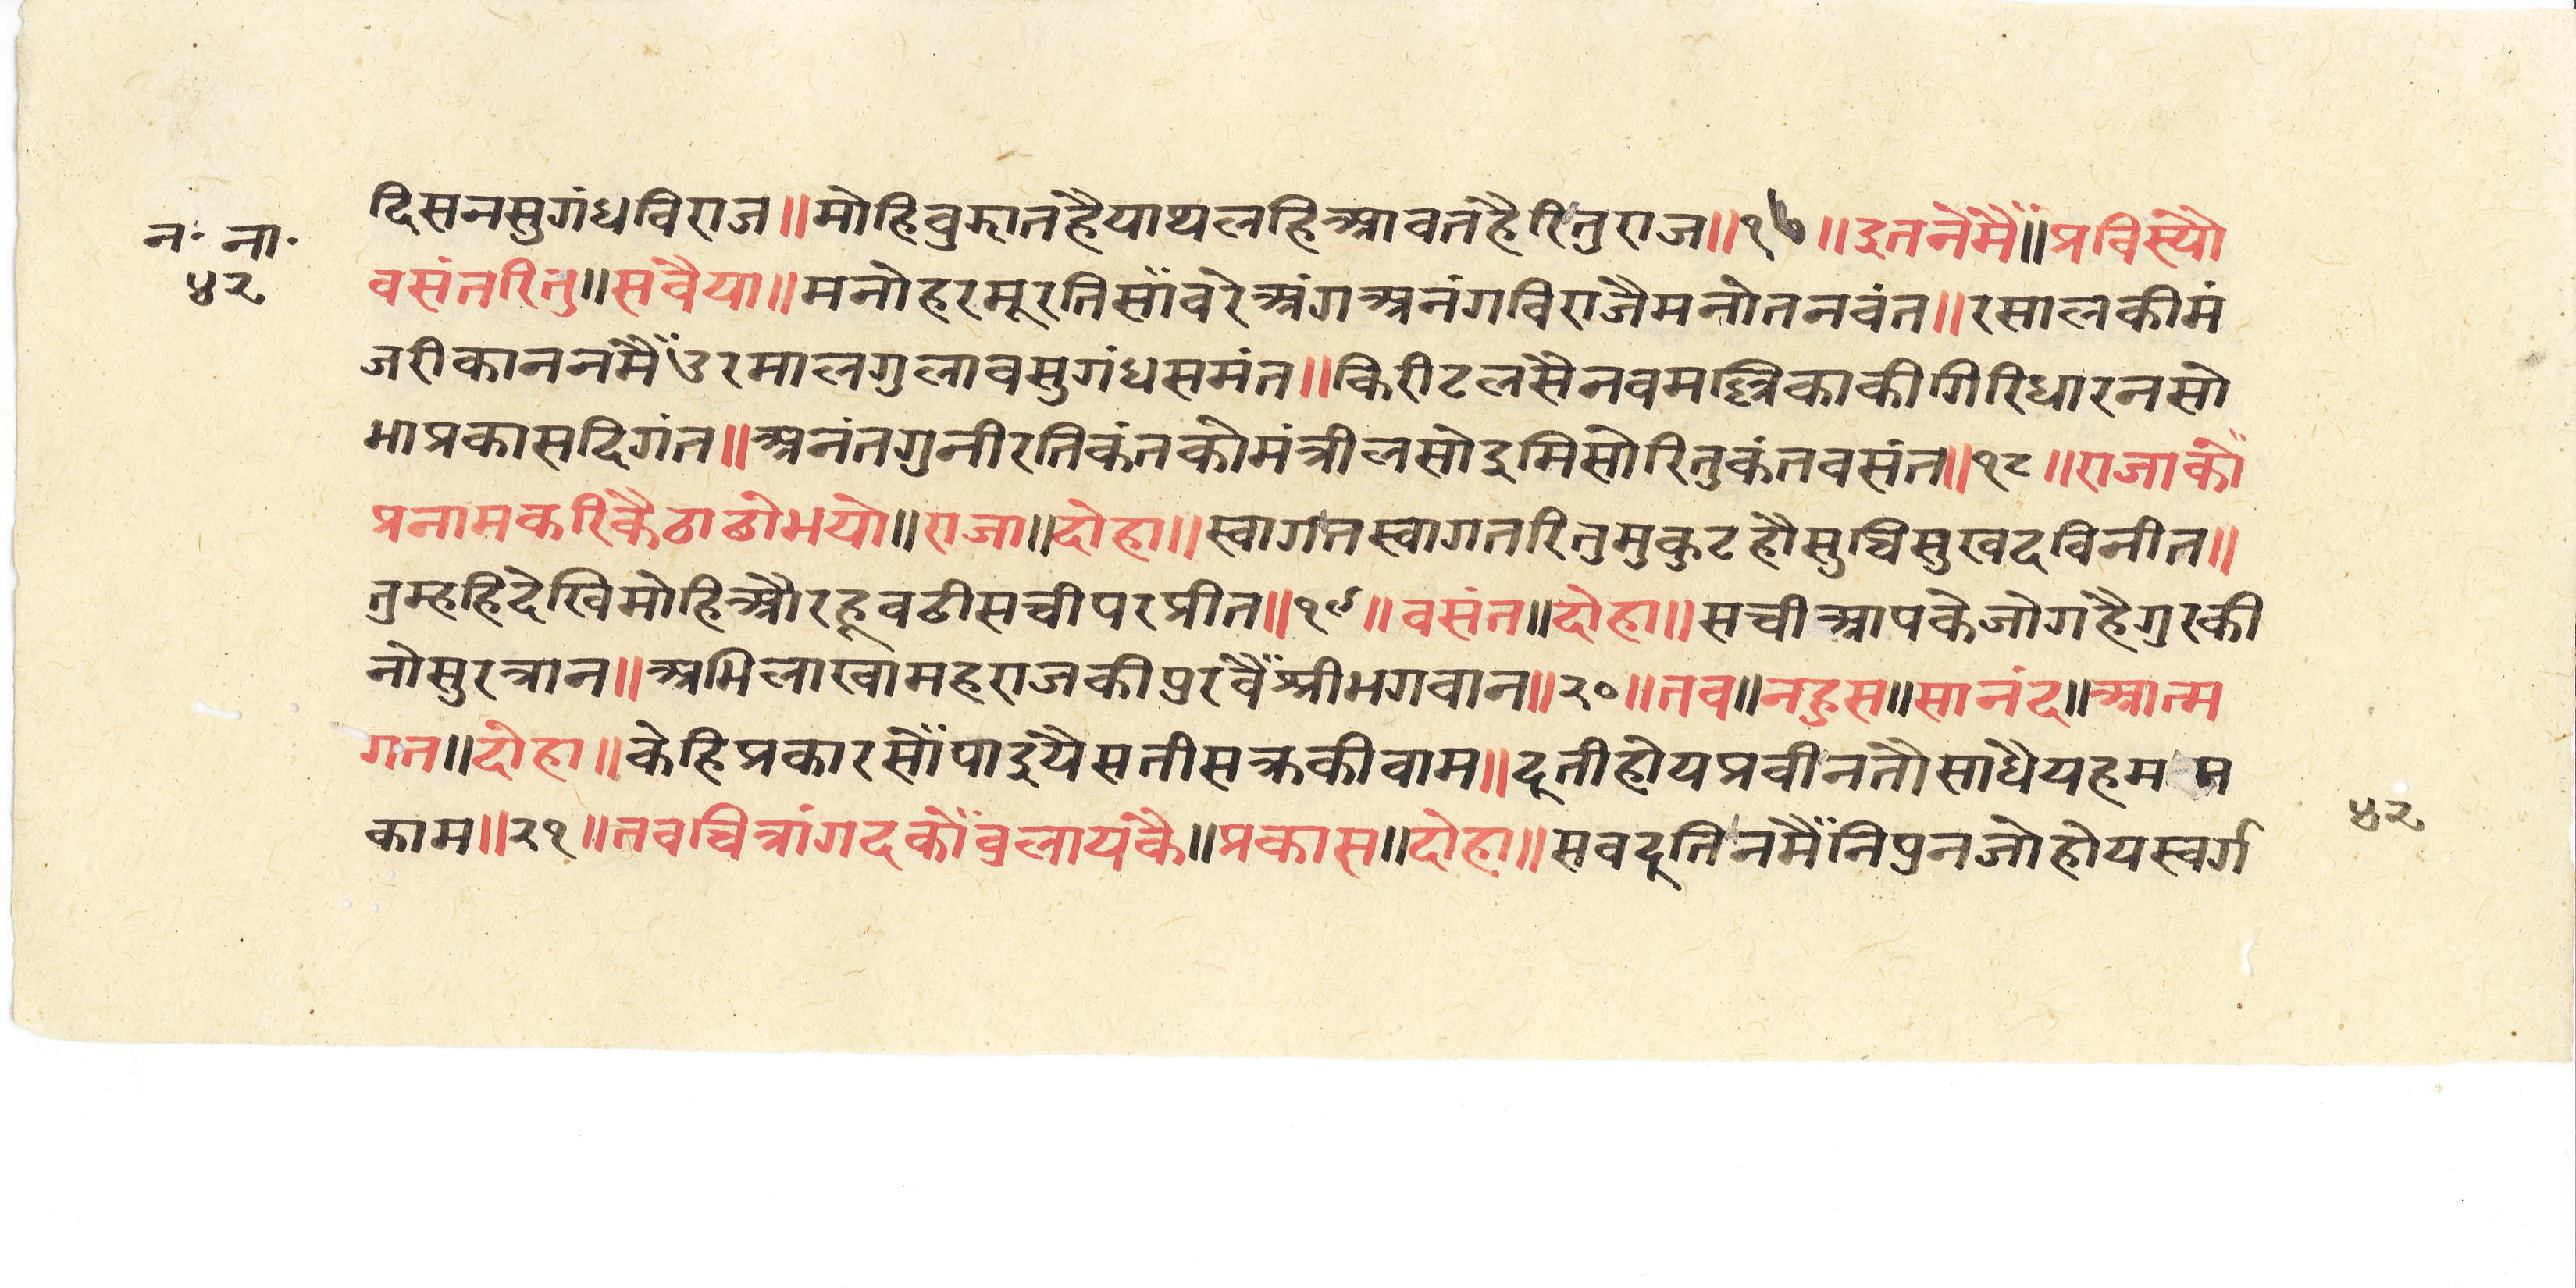 न॰ ना॰
५२
दिसनसुगंधविराज॥मोहिवुझातहैयाथलहिआवतहैरितुराज॥१७॥इतनेमैं॥प्रविस्यौ
वसंतरितु॥सवैया॥मनोहरमूरतिसाँवरेअंगअनंगविराजैमनोतनवंत॥रसालकीमं
जरीकाननमैंउरमालगुलावसुगंधसमंत॥किरीटलसैनवमल्लिकाकीगिरिधारनसो
भाप्रकासदिगंत॥अनंतगुनीरतिकंतकोमंत्रीलसोइमिसोरितुकंतवसंत॥१८॥राजाकों
प्रनामकरिकैठाढोभयो॥राजा॥दोहा॥स्वागतस्वागतरितुमुकुटहौसुचिसुखदविनीत॥
तुम्हहिदेखिमोहिऔरहूवढीसचीपरप्रीत॥१९॥वसंत॥दोहा॥सचीआपकेजोगहैगुरकी
नोसुरत्रान॥अभिलाखामहराजकीपुरवैंश्रीभगवान॥२०॥तव॥नहुस॥सानंद॥आत्म
गत॥दोहा॥केहिप्रकारसोंपाइयैसतीसक्रकीवाम॥दूतीहोयप्रवीनतौसाधैयहमम
काम॥२१॥तवचित्रांगदकोंवुलायकै॥प्रकास॥दोहा॥सवदूतिनमैंनिपुनजोहोयस्वर्ग
५२